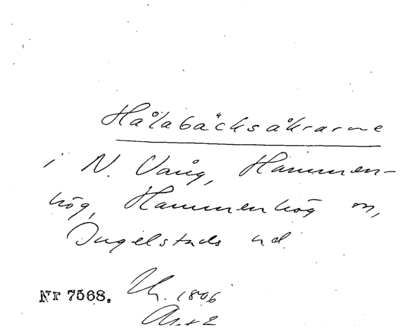 Hålabäcksåkrarne
i N. Vång, Hammen-
hög, Hammenhög sn,
Ingelstads hd.
Nr 7568. 1806